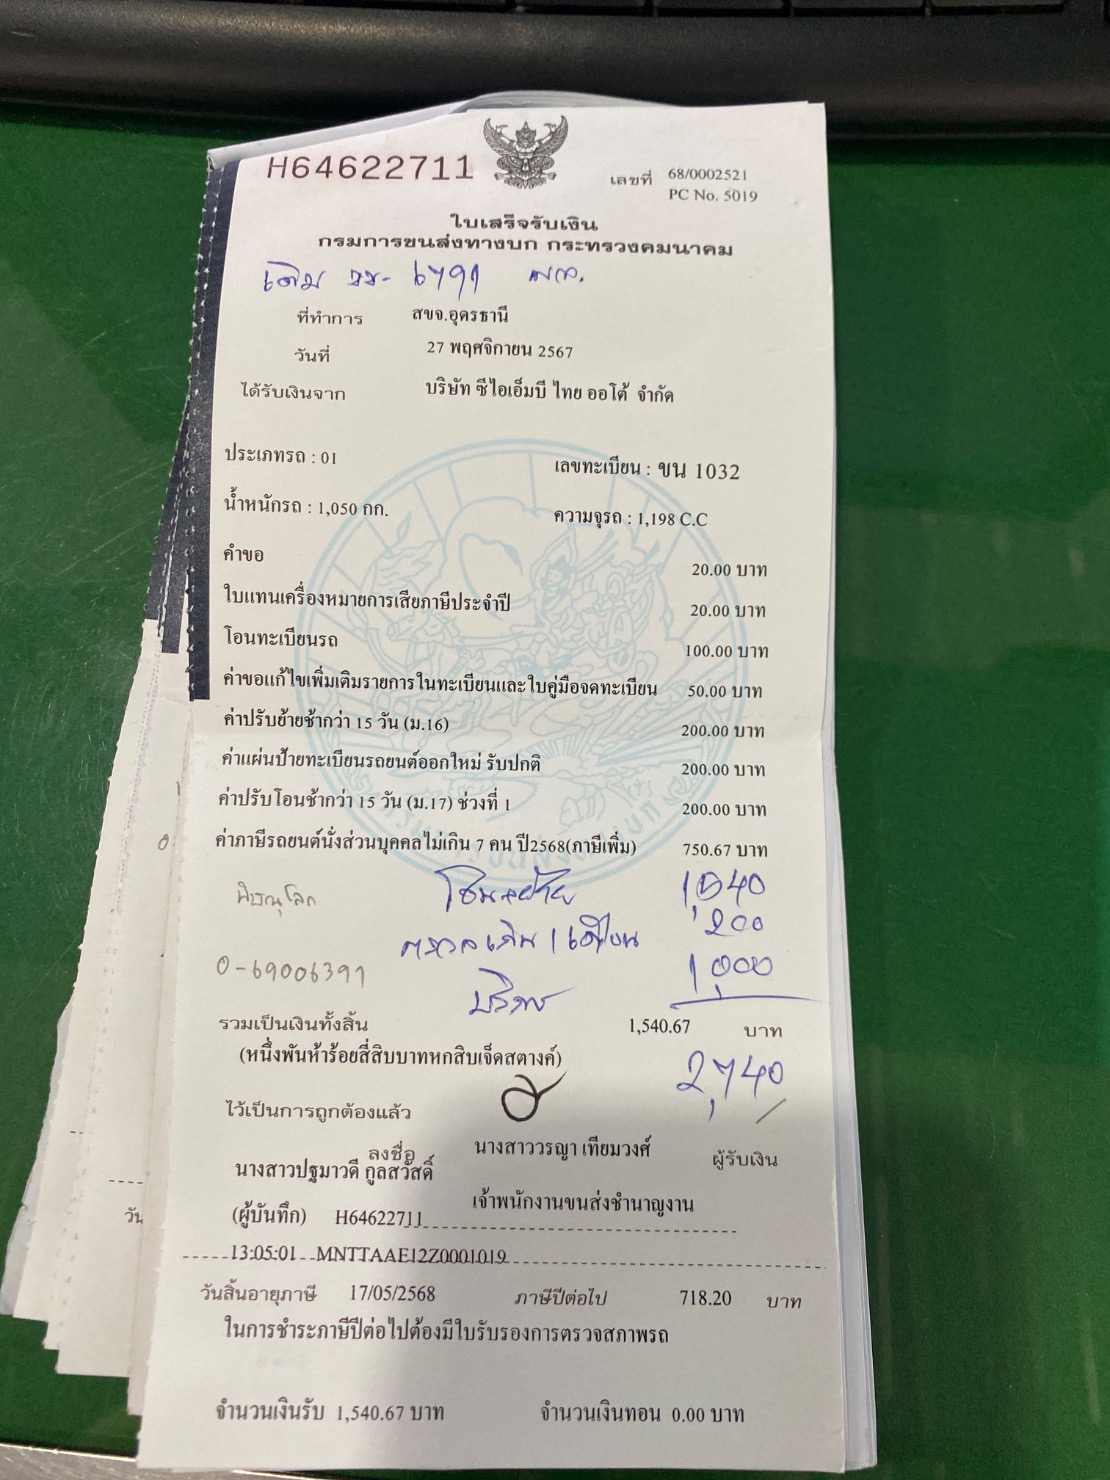 H64622711
เลขที่ 68/0002521
PC No. 5019
ใบเสร็จรับเงิน
กรมการขนส่งทางบก กระทรวงคมนาคม
เดิม ขข- 6791 พล.
ที่ทำการ สขจ.อุดรธานี
วันที่ 27 พฤศจิกายน 2567
ได้รับเงินจาก บริษัท ซีไอเอ็มบี ไทย ออโต้ จำกัด
ประเภทรถ : 01 เลขทะเบียน : ขน 1032
น้ำหนักรถ : 1,050 กก. ความจุรถ : 1,198 C.C
คำขอ 20.00 บาท
ใบแทนเครื่องหมายการเสียภาษีประจำปี 20.00 บาท
โอนทะเบียนรถ 100.00 บาท
ค่าขอแก้ไขเพิ่มเติมรายการในทะเบียนและใบคู่มือจดทะเบียน 50.00 บาท
ค่าปรับย้ายช้ากว่า 15 วัน (ม.16) 200.00 บาท
ค่าแผ่นป้ายทะเบียนรถยนต์ออกใหม่ รับปกติ 200.00 บาท
ค่าปรับโอนช้ากว่า 15 วัน (ม.17) ช่วงที่ 1 200.00 บาท
ค่าภาษีรถยนต์นั่งส่วนบุคคลไม่เกิน 7 คน ปี2568(ภาษีเพิ่ม) 750.67 บาท
พิษณุโลก โอน+ย้าย 1,540
ตรวจเกิน 1 เดือน 200
0-69006391 บริการ 1,000
รวมเป็นเงินทั้งสิ้น 1,540.67 บาท
(หนึ่งพันห้าร้อยสี่สิบบาทหกสิบเจ็ดสตางค์) 2,740
ไว้เป็นการถูกต้องแล้ว
ลงชื่อ นางสาววรญา เทียมวงศ์ ผู้รับเงิน
นางสาวปฐมาวดี กูลสวัสดิ์
เจ้าพนักงานขนส่งชำนาญงาน
(ผู้บันทึก) H64622711
13:05:01 MNTTAAE12Z0001019
วันสิ้นอายุภาษี 17/05/2568 ภาษีปีต่อไป 718.20 บาท
ในการชำระภาษีปีต่อไปต้องมีใบรับรองการตรวจสภาพรถ
จำนวนเงินรับ 1,540.67 บาท จำนวนเงินทอน 0.00 บาท